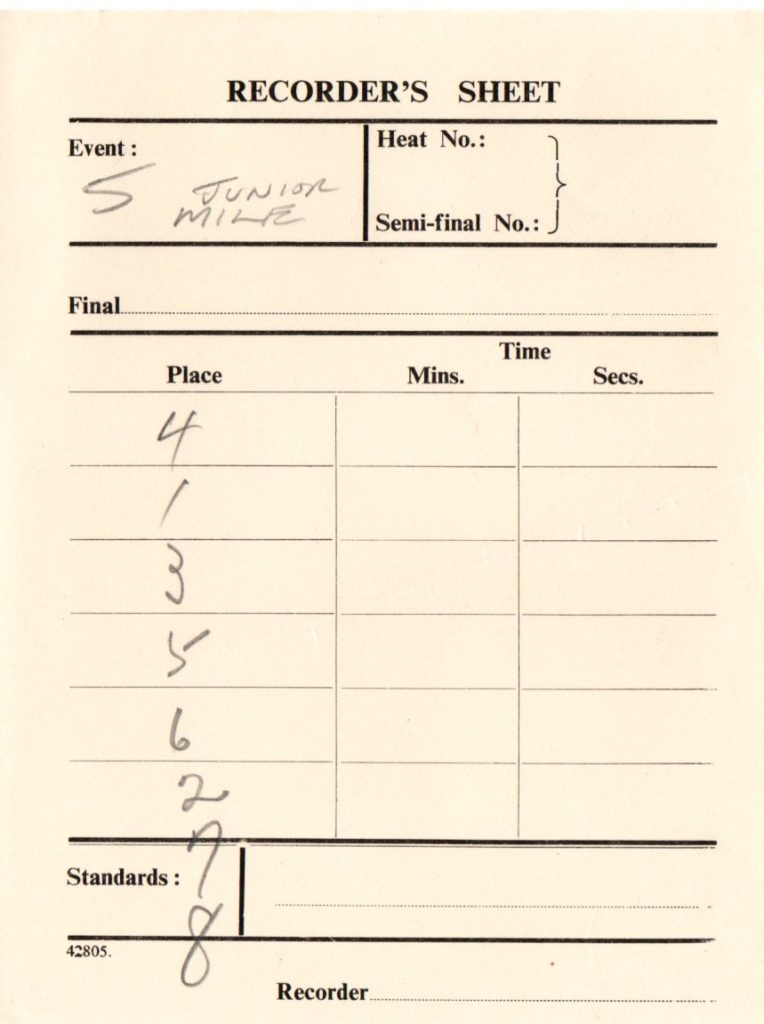 RECORDER'S SHEET
Event :
5 JUNIOR
MILE
Heat No.:
Semi-final No.:
Final
Time
Place Mins. Secs.
4
1
3
5
6
2
7
Standards :
8
42805.
Recorder